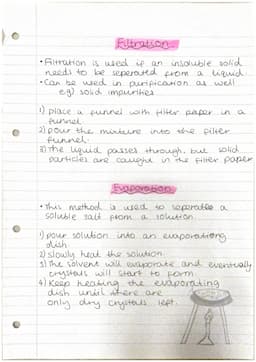 Filtration
• Filtration is used if an insoluble solid
needs to be seperated from a liquid.
• Can be used in purification as well
eg) solid impurities
1) place a funnel with filter paper in a
funnel.
2) pour the mixture into the filter
funnel.
3) The liquid passes through, but solid
particles are caught in the filter paper
Evaporation
• This method is used to seperate a
soluble salt from a solution.
1) pour solution into an evaporating
dish
2) slowly heat the solution.
3) The solvent will evaporate and eventually
crystals will start to form.
4) Keep heating the evaporating
dish until there are
only dry crystals left.